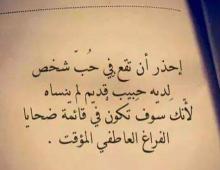 إحذر أن تقع في حُبّ شخص
لديه حبيبٌ قديم لم ينساه
لأنك سوف تكون في قائمة ضحايا
الفراغ العاطفي المؤقت .